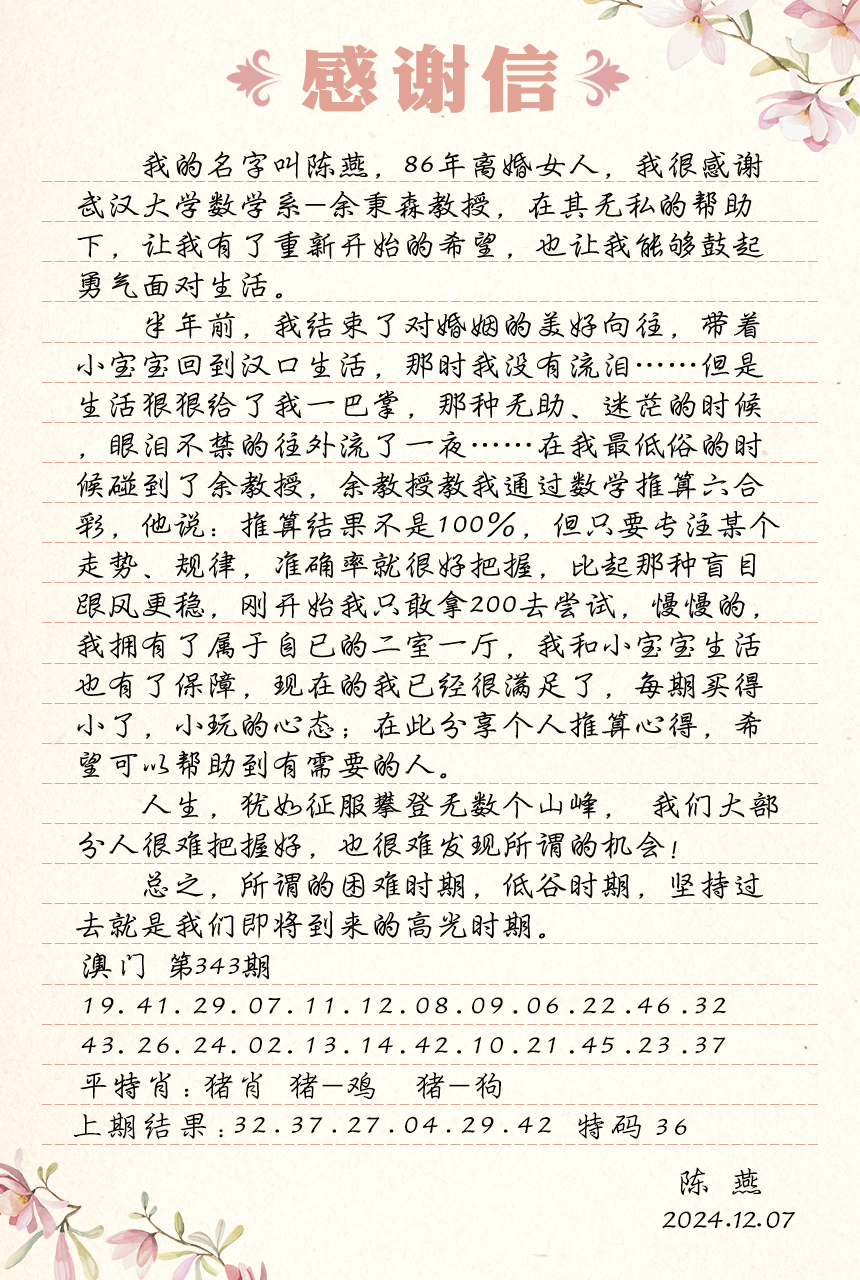 感谢信
我的名字叫陈燕，86年离婚女人，我很感谢
武汉大学数学系—余秉森教授，在其无私的帮助
下，让我有了重新开始的希望，也让我能够鼓起
勇气面对生活。
半年前，我结束了对婚姻的美好向往，带着
小宝宝回到汉口生活，那时我没有流泪……但是
生活狠狠给了我一巴掌，那种无助、迷茫的时候
，眼泪不禁的往外流了一夜……在我最低俗的时
候碰到了余教授，余教授教我通过数学推算六合
彩，他说：推算结果不是100%，但只要专注某个
走势、规律，准确率就很好把握，比起那种盲目
跟风更稳，刚开始我只敢拿200去尝试，慢慢的，
我拥有了属于自已的二室一厅，我和小宝宝生活
也有了保障，现在的我已经很满足了，每期买得
小了，小玩的心态；在此分享个人推算心得，希
望可以帮助到有需要的人。
人生，犹如征服攀登无数个山峰， 我们大部
分人很难把握好，也很难发现所谓的机会！
总之，所谓的困难时期，低谷时期，坚持过
去就是我们即将到来的高光时期。
澳门 第343期
19.41.29.07.11.12.08.09.06.22.46.32
43.26.24.02.13.14.42.10.21.45.23.37
平特肖：猪肖 猪—鸡 猪—狗
上期结果：32.37.27.04.29.42 特码 36
陈 燕
2024.12.07